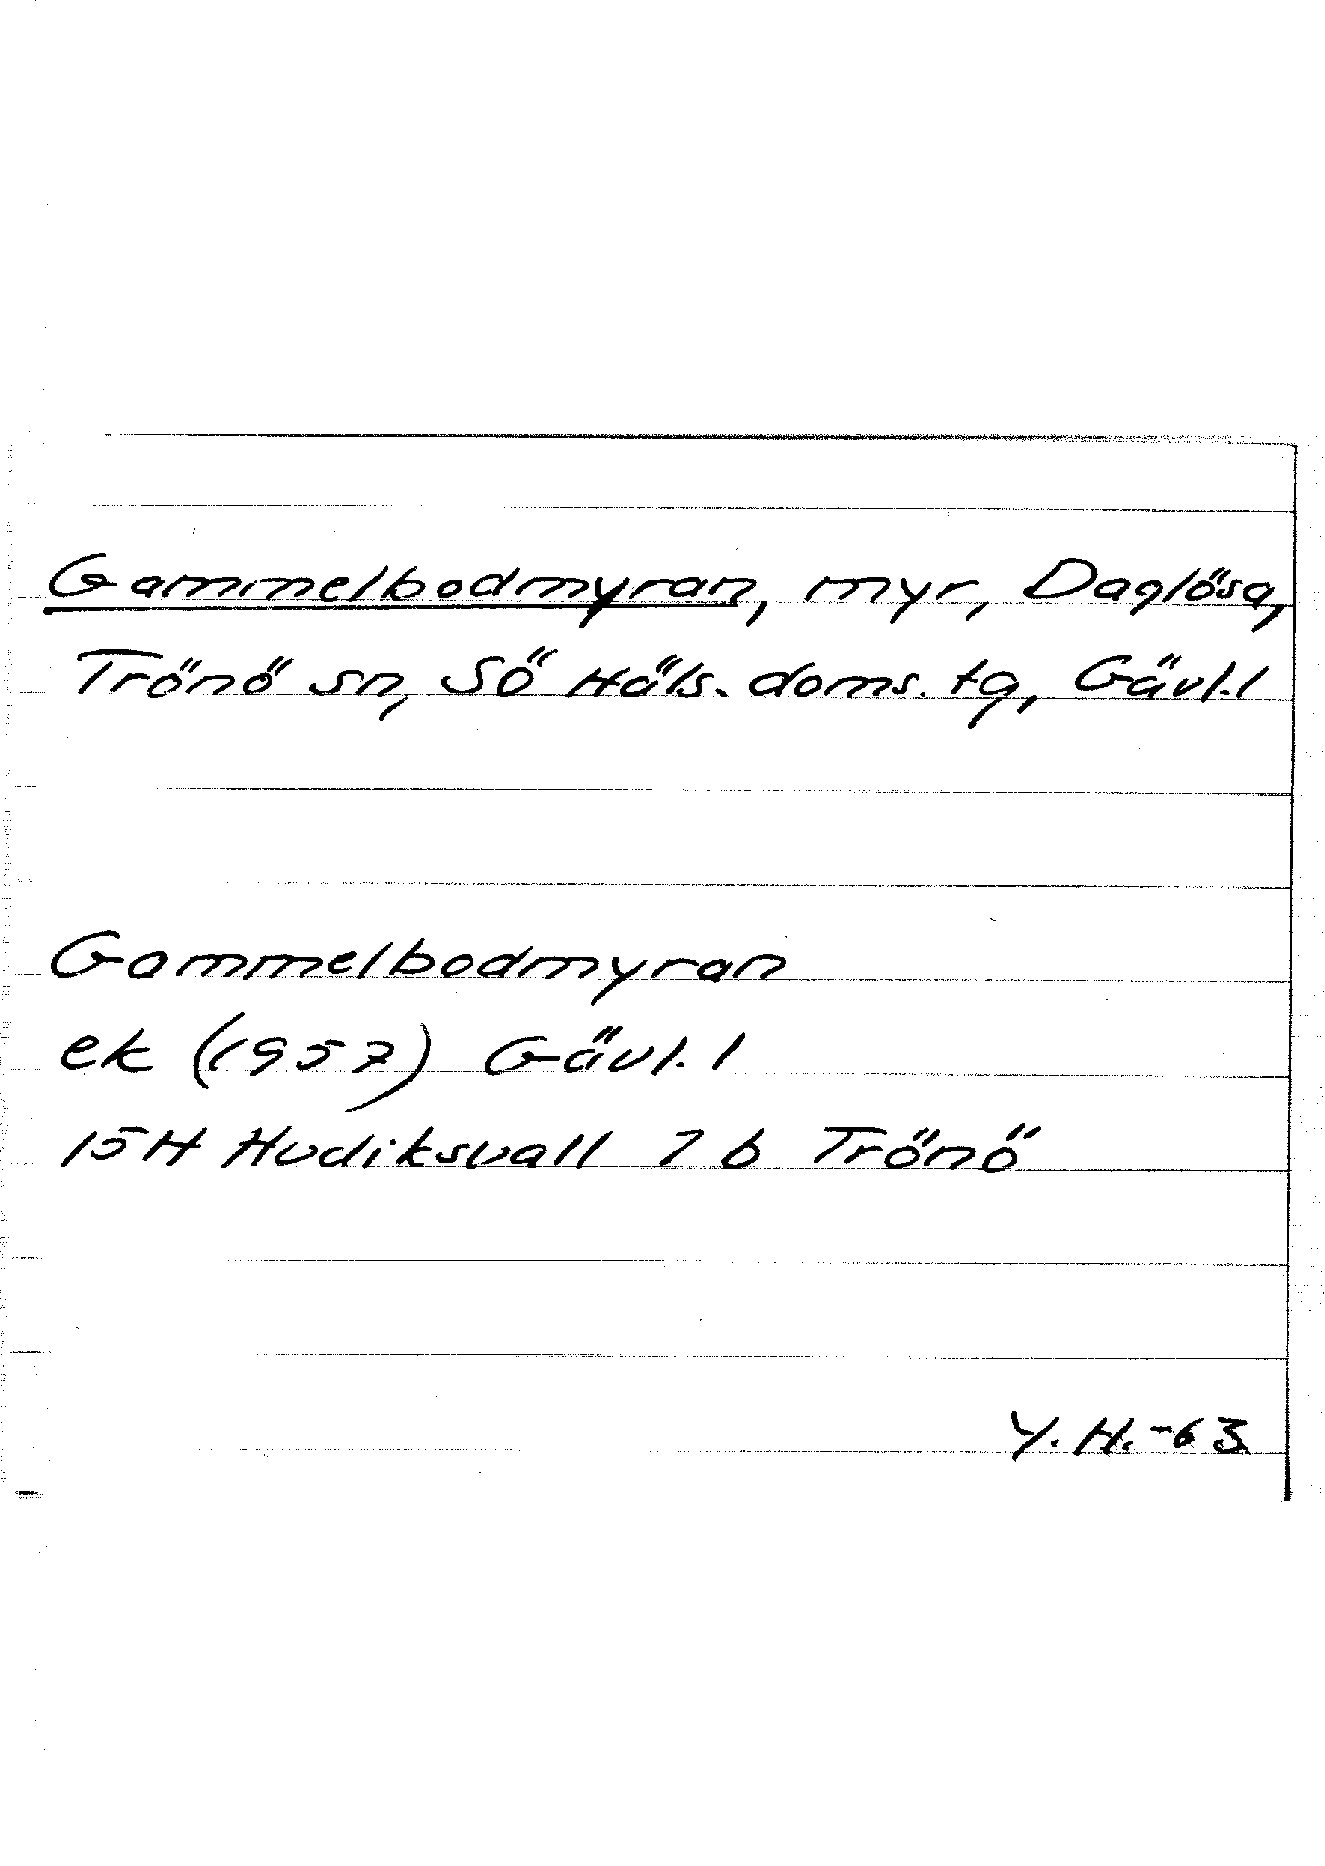 Gammelbodmyran, myr, Daglösa,
Trönö sn, SÖ Häls. doms. tg, Gävl. l
Gammelbodmyran
ek (1957) Gävl. l
15H Hudiksvall 7 b Trönö
Y. H. -63